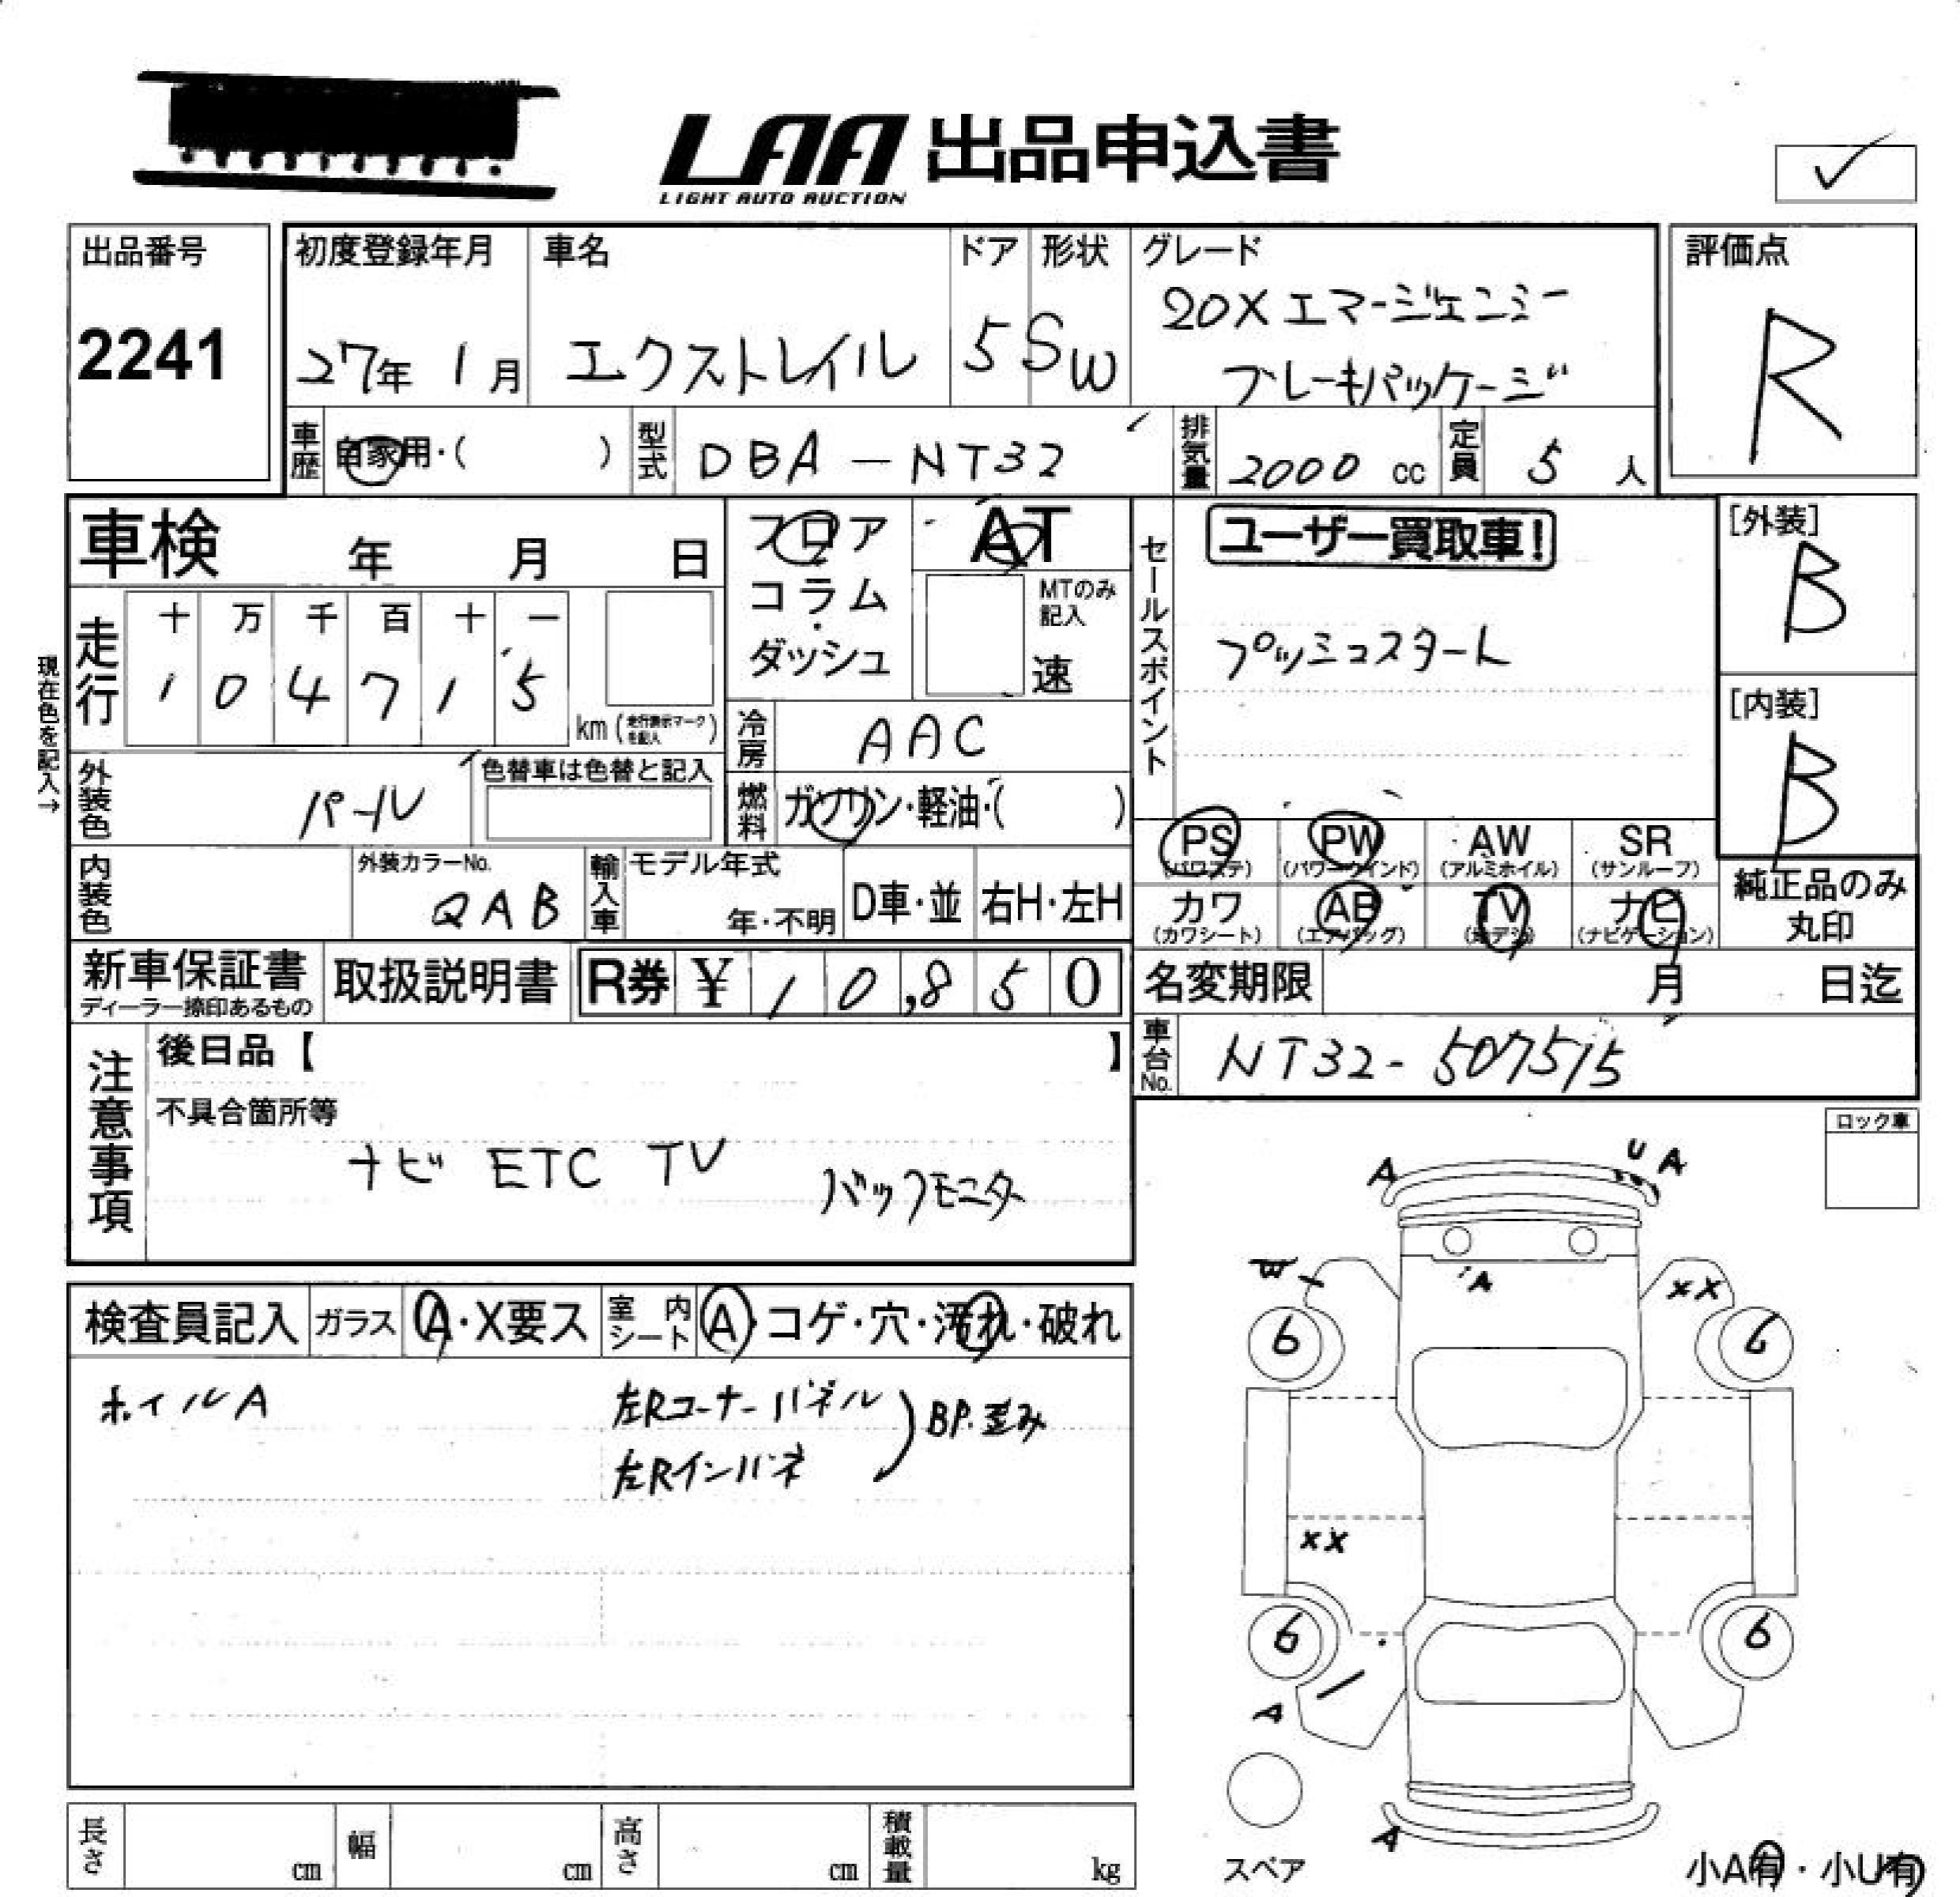 LAA 出品申込書
LIGHT AUTO AUCTION
出品番号
2241
初度登録年月
27年 1月
車名
エクストレイル
ドア
5
形状
SW
グレード
20X エマージェンシー
ブレーキパッケージ
評価点
R
車歴
自家用・( )
型式
DBA-NT32
排気量
2000 cc
定員
5 人
車検 年 月 日
フロア
コラム
ダッシュ
AT
MTのみ
記入
速
セールスポイント
ユーザー買取車!
プッシュスタート
[外装]
B
[内装]
B
現在色を記入→
走行
十 万 千 百 十 一
1 0 4 7 1 5
km (走行表示マークを記入)
冷房
AAC
外装色
パール
色替車は色替と記入
燃料
ガソリン・軽油・( )
PS
(パワステ)
PW
(パワーウインド)
AW
(アルミホイル)
SR
(サンルーフ)
カワ
(カワシート)
AB
(エアバッグ)
TV
(地デジ)
ナビ
(ナビゲーション)
純正品のみ
丸印
内装色
外装カラーNo.
QAB
輸入車
モデル年式
年・不明
D車・並
右H・左H
新車保証書
ディーラー捺印あるもの
取扱説明書
R券 ¥ 10,850
名変期限 月 日迄
車台No.
NT32-507515
注意事項
後日品【 】
不具合箇所等
ナビ ETC TV バックモニター
ロック車
検査員記入
ガラス
A・X要ス
室内シート
A・コゲ・穴・汚れ・破れ
ホイルA
左Rコーナーパネル
左Rインパネ
BP.歪み
A
U A
W
A
XX
6
6
XX
6
6
A
A
スペア
小A有・小U有
長さ cm
幅 cm
高さ cm
積載量 kg